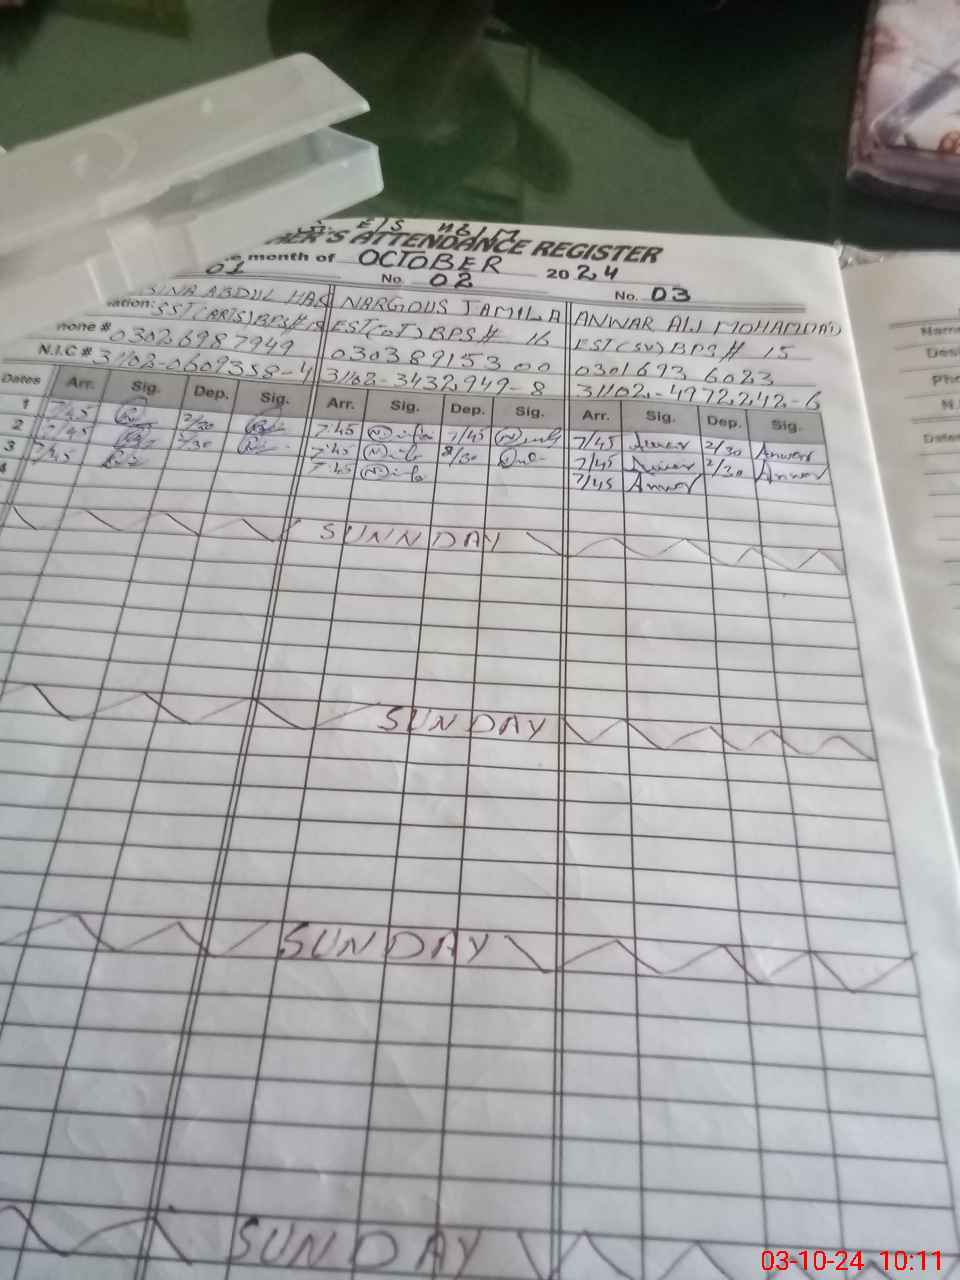 E/S
HER'S ATTENDANCE REGISTER
e month of OCTOBER 2024
01 No. 02 No. 03
SINA ABDUL HAQ NARGOUS JAMILA ANWAR ALI MOHAMMAD
ation: SST(ARTS)BPS# EST(OT)BPS# 16 EST(SV)BPS# 15
hone # 03026987949 03038915300 0301693 6023
N.I.C # 31102-0609358-4 31102-3432949-8 31102-4972242-6
Dates Arr. Sig. Dep. Sig. Arr. Sig. Dep. Sig. Arr. Sig. Dep. Sig.
1 7/45 2/30 7:45 7/45 7/45 Anwar 2/30 Anwar
2 7/45 2/30 7:45 2/30 7/45 Anwar 2/30 Anwar
3 7/45 7:45 7/45 Anwar
4
SUNNDAY
SUNDAY
SUNDAY
SUNDAY
Name
Desi
Pho
N.I
Dates
03-10-24 10:11